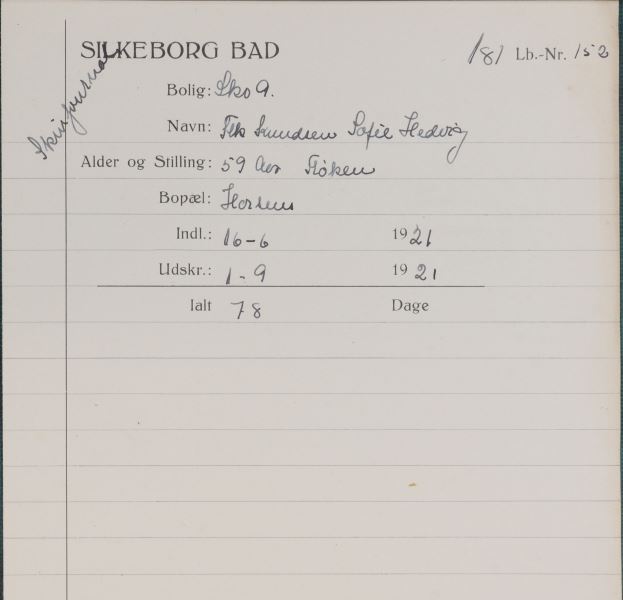 SILKEBORG BAD 181 Lb.-Nr. 152
Skinjournal
Bolig: Sko 9.
Navn: Frk Knudsen Sofie Hedvig
Alder og Stilling: 59 Aar Frøken
Bopæl: Horsens
Indl.: 16-6 1921
Udskr.: 1-9 1921
Ialt 78 Dage